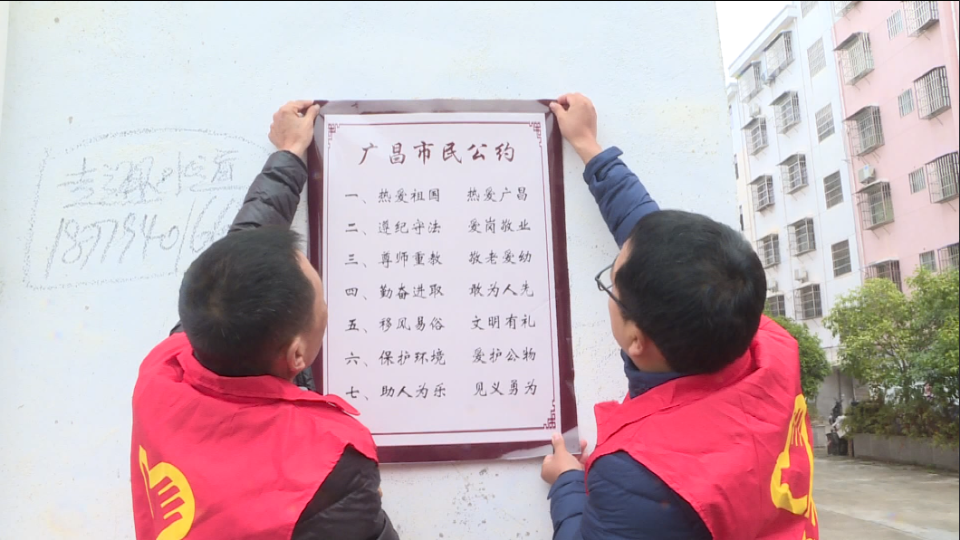 广昌市民公约
一、热爱祖国 热爱广昌
二、遵纪守法 爱岗敬业
三、尊师重教 敬老爱幼
四、勤奋进取 敢为人先
五、移风易俗 文明有礼
六、保护环境 爱护公物
七、助人为乐 见义勇为